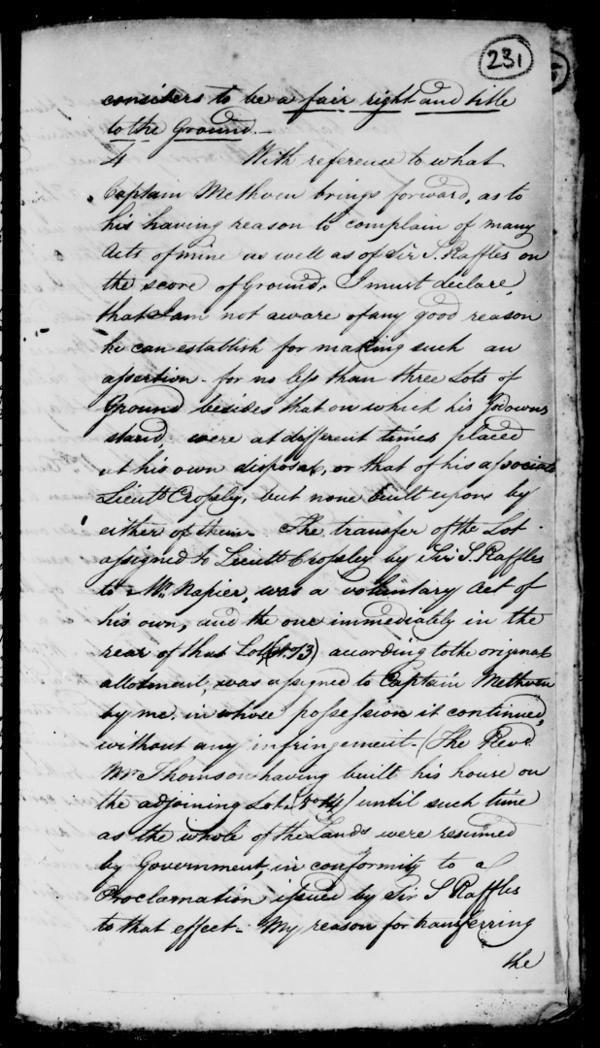 231
considers to be a fair right and title
to the Ground.—
4 With reference to what
Captain Methven brings forward, as to
his having reason to complain of many
Acts of mine as well as of Sir S. Raffles on
the score of Ground, I must declare,
that I am not aware of any good reason
he can establish for making such an
assertion - for no less than three Lots of
Ground besides that on which his Godowns
stand, were at different times placed
at his own disposal, or that of his associate
Lieutt. Crossley, but none built upon by
either of them - The transfer of the Lot
assigned to Lieutt. Crossley by Sir S. Raffles
to Mr. Napier, was a voluntary act of
his own, and the one immediately in the
rear of that Lot, (No. 13) according to the original
allotment, was assigned to Captain Methven
by me, in whose possession it continued,
without any infringement - (The Revd.
Mr. Thomson having built his house on
the adjoining Lot, No. 14) until such time
as the whole of the Lands were resumed
by Government, in conformity to a
Proclamation issued by Sir S Raffles
to that effect - My reason for transferring
the